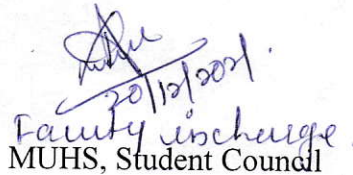 20/12/2021.
Faculty incharge
MUHS, Student Council